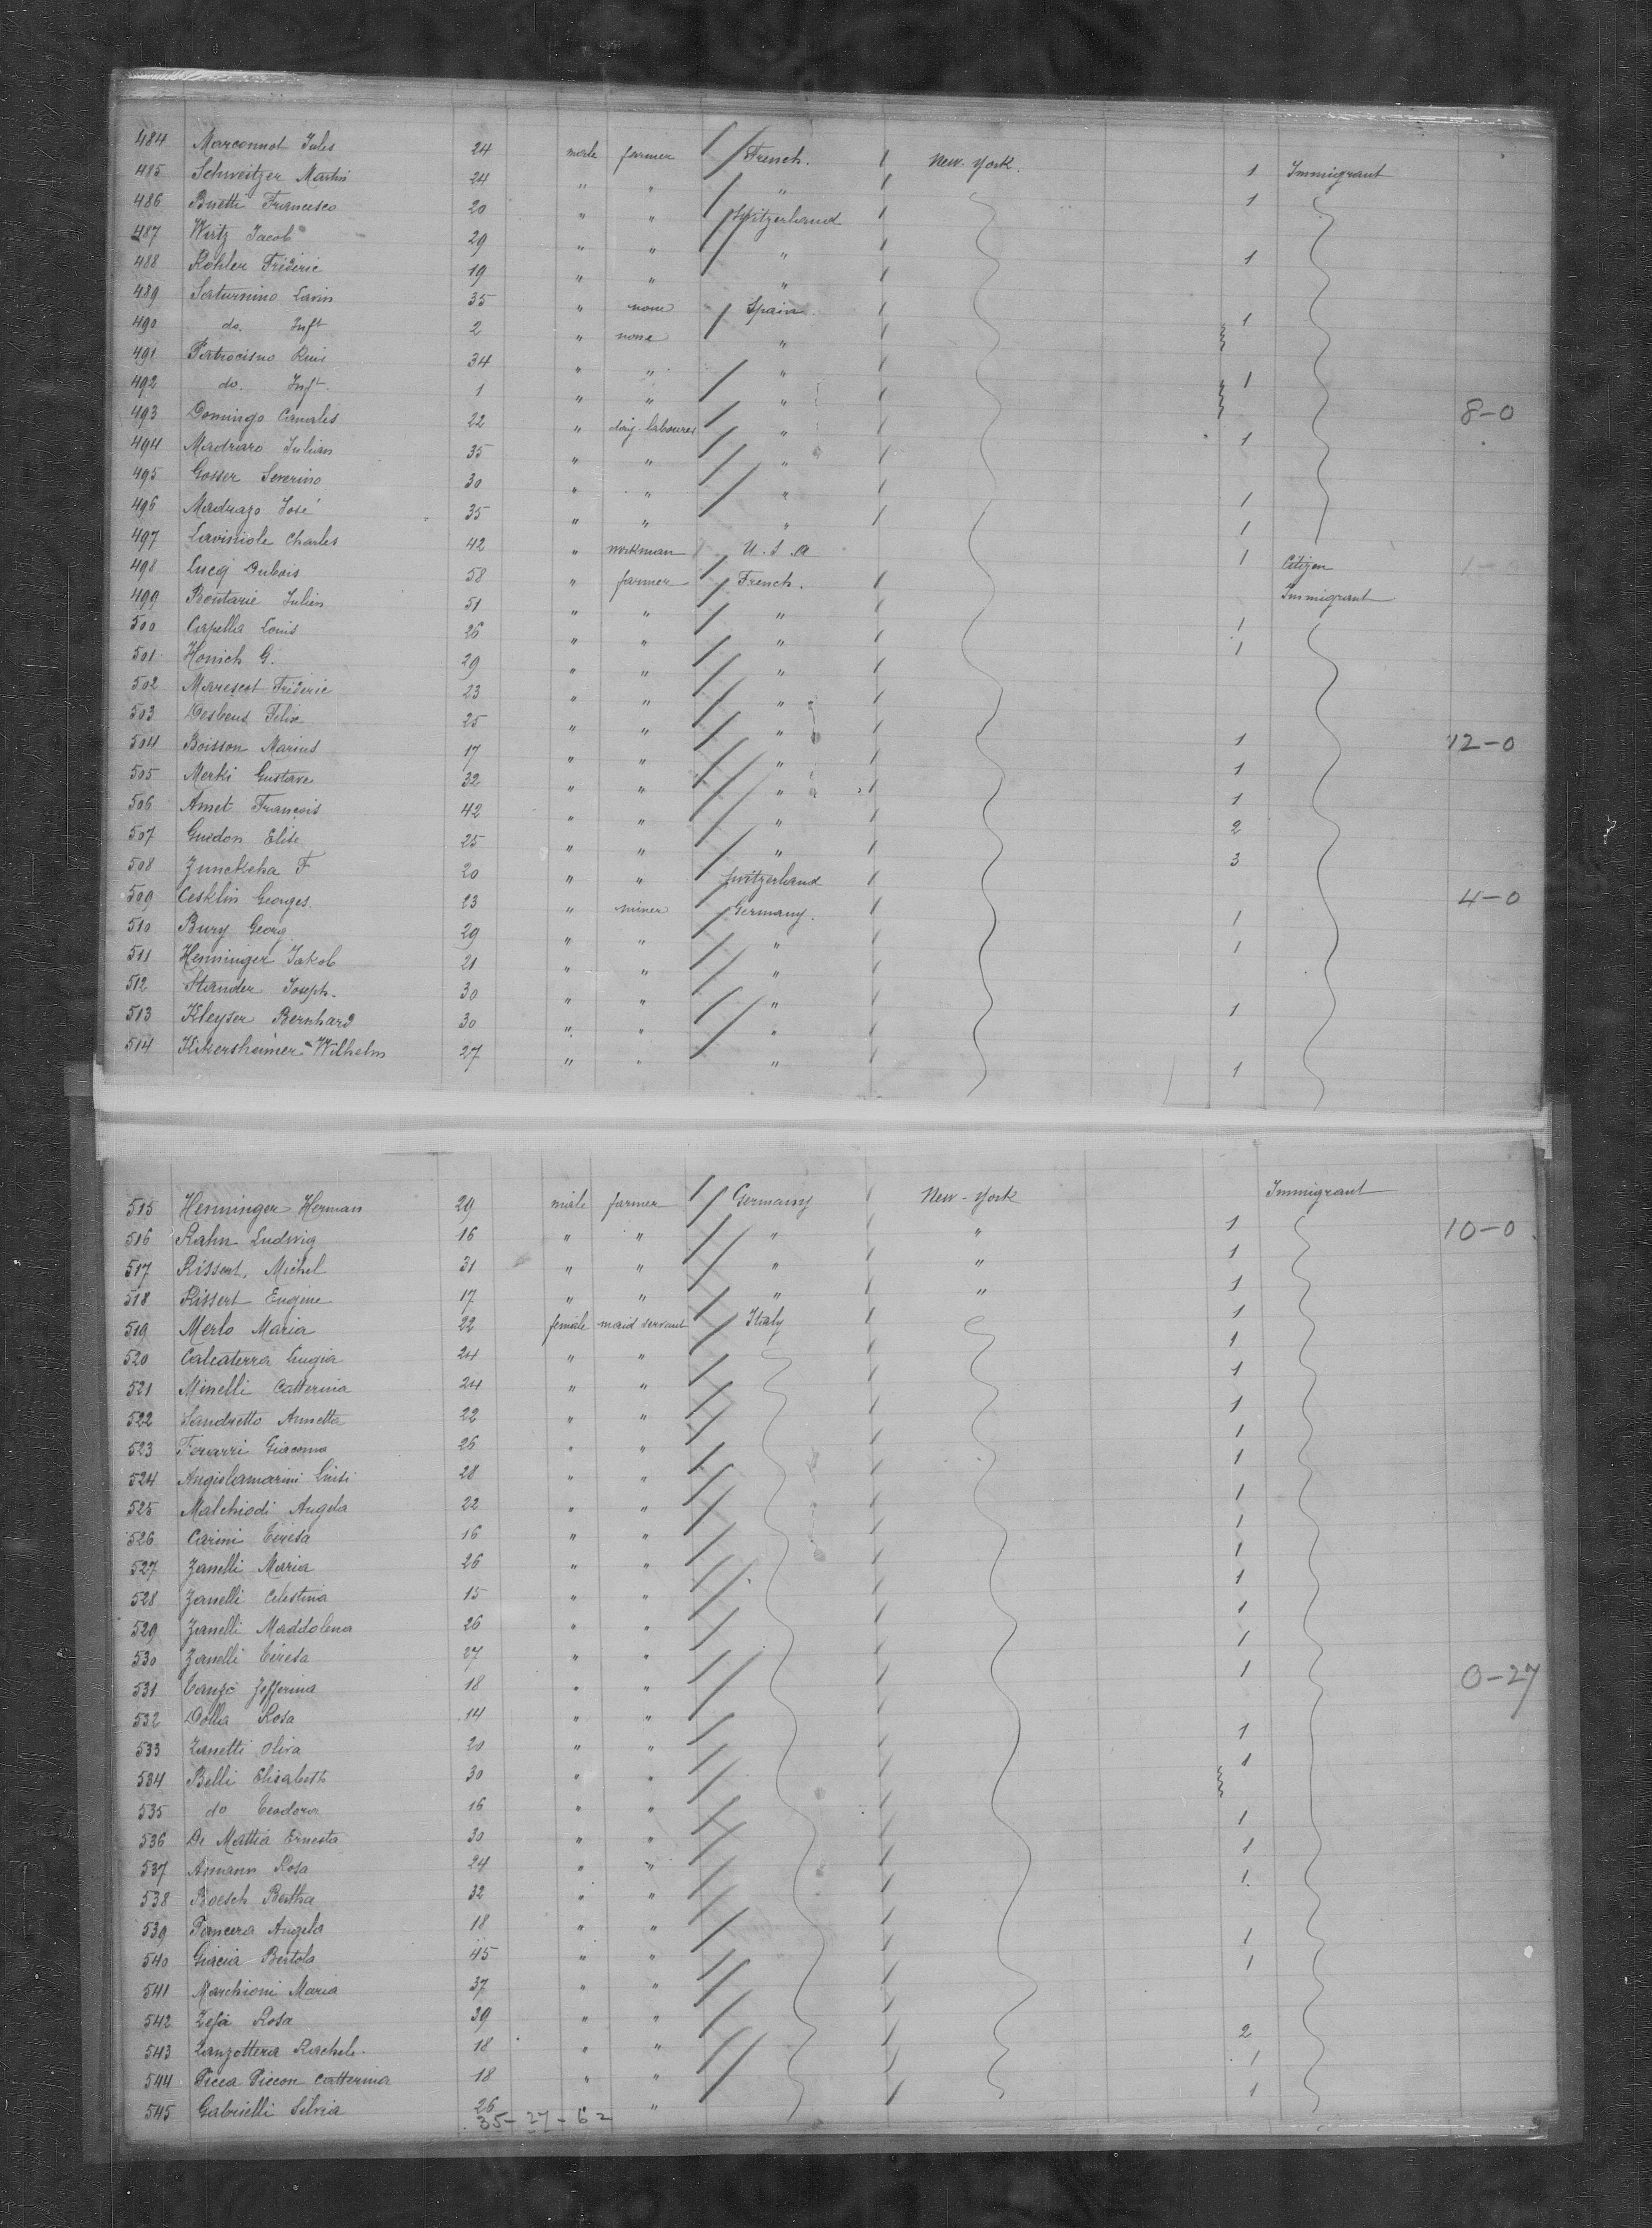 484 Marconnot Jules 24 male farmer French. New-York. 1 Immigrant
485 Schweitzer Martin 24 " " " 1
486 Bnetti Francesco 20 " " Switzerland
487 Wirtz Jacob 29 " " " 1
488 Kohler Fréderic 19 " " "
489 Saturnino Lavin 35 " none Spain. 1
490 do. Inft 2 " none "
491 Patrocisno 34 " " " 1
492 do. Inft. 1 " " " 8-0
493 Domingo Canales 22 " day-labourer " 1
494 Madraro Julian 35 " " "
495 Gosser Severino 30 " " " 1
496 Madrazo José 35 " " " 1
497 Laviniole Charles 42 " workman U.S.A 1 Citizen
498 Lucq Dubois 58 " farmer French. Immigrant
499 Boutarie Julien 51 " " " 1
500 Capella Louis 26 " " " 1
501 Honich G. 29 " " "
502 Marescot Fréderic 23 " " "
503 Desbeus Felix 25 " " " 1 12-0
504 Boisson Marius 17 " " " 1
505 Merki Gustave 32 " " " 1
506 Amet François 42 " " " 2
507 Guédon Elise 25 " " " 3
508 Junckeha F 20 " " Switzerland 4-0
509 Cesklin Georges. 23 " miner Germany. 1
510 Bury Georg 29 " " " 1
511 Henninger Jakob 21 " " "
512 Stander Joseph. 30 " " " 1
513 Kleyser Bernhard 30 " " "
514 Kikersheimer Wilhelm 27 " " " 1
515 Henninger Herman 29 male farmer Germany New-York Immigrant
516 Rahn Ludwig 16 " " " " 1 10-0
517 Rissert, Michel 31 " " " " 1
518 Rissert Eugene 17 " " " " 1
519 Merlo Maria 22 female maid servant Italy 1
520 Calcaterra Luigia 24 " " 1
521 Minelli Catterina 24 " " 1
522 Sandretto Annetta 22 " " 1
523 Ferarri Giacoma 26 " " 1
524 Angiolamarini Luisi 28 " " 1
525 Malchiodi Angela 22 " " 1
526 Carini Teresa 16 " " 1
527 Zanelli Maria 26 " " 1
528 Zanelli Celestina 15 " " 1
529 Zanelli Maddolena 26 " " 1
530 Zanelli Teresa 27 " " 1
531 Canzi Zefferina 18 " " 1 0-27
532 Dolla Rosa 14 " "
533 Zanetti Oliva 20 " " 1
534 Belli Elisabeth 30 " " 1
535 do Teodora 16 " "
536 De Mattia Ernesta 30 " " 1
537 Asmann Rosa 24 " " 1
538 Boesch Bertha 32 " " 1
539 Fancera Angela 18 " "
540 Giacia Bertola 45 " " 1
541 Marchioni Maria 37 " " 1
542 Zefa Rosa 39 " "
543 Lanzotterra Rachele. 18 " " 2
544 Picca Piccon Catterina 18 " " 1
545 Gabrielli Silvia 26 " 1
35-27-62